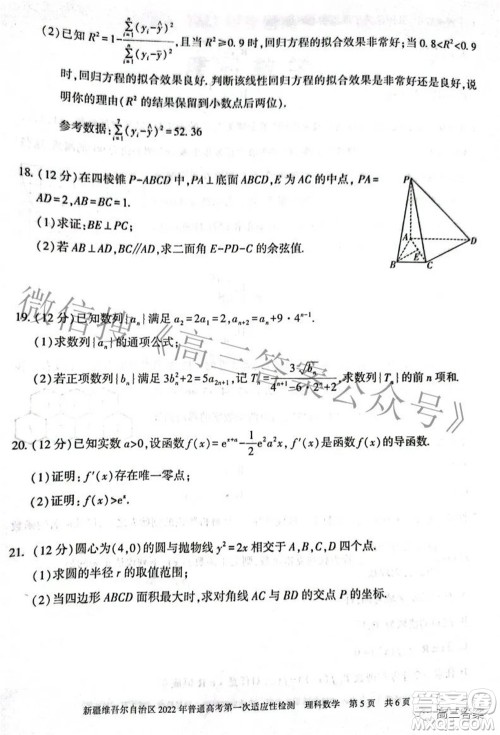 (2)已知 R²=1-∑(i=1→n)(yᵢ-ŷ)²/∑(i=1→n)(yᵢ-ȳ)²,当 R²≥0.9 时,回归方程的拟合效果非常好;当 0.8<R²<0.9
时,回归方程的拟合效果良好. 判断该线性回归方程的拟合效果是非常好还是良好,说
明你的理由(R² 的计算结果精确到小数点后两位).
参考数据:∑(i=1→7)(yᵢ-ŷ)²=52.36
18. (12分)在四棱锥 P-ABCD 中,PA⊥底面 ABCD,E 为 AC 的中点,PA=
AD=2,AB=BC=1.
(1)求证:BE⊥PC;
(2)若 AB⊥AD,BC∥AD,求二面角 E-PD-C 的余弦值.
P
A
D
E
B
C
19. (12分)已知数列{aₙ}满足 a₂=2a₁=2,
(1)求数列{aₙ}的通项公式;
(2)若正项数列{bₙ}满足
的前 n 项和.
20. (12分)已知实数 a>0,设函数 f(x)=eˣ⁺ᵃ-½e²x²+a,f′(x)是函数 f(x)的导函数.
(1)证明:f′(x)存在唯一零点;
(2)证明:f(x)>eˣ.
21. (12分)圆心为(4,0)的圆与抛物线 y²=2x 相交于 A,B,C,D 四个点.
(1)求圆的半径 r 的取值范围;
(2)当四边形 ABCD 面积最大时,求对角线 AC 与 BD 的交点 P 的坐标.
新疆维吾尔自治区2022年普通高考第一次适应性检测 理科数学 第5页 共6页
微信搜《高三答案公众号》
高三答案